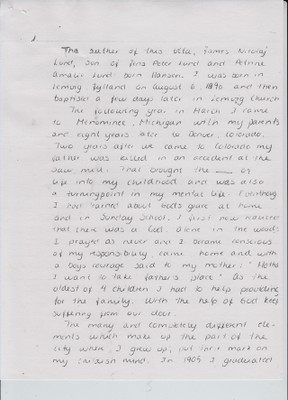 1
The author of this Vita, James Nicolaj
Lund, son of Jens Peter Lund and Petrine
Amalie Lund: born Hansen. I was born in
Lemvig Jylland on August 6, 1890 and then
baptised a few days later in Lemvig Church
The following year in March I came
to Menominee, Michigan with my parents
and eight years later to Denver, Colorado.
Two years after we came to Colorado my
father was killed in an accident at the
saw mill. That brought the ___ of
life into my childhood and was also
a turningpoint in my mental life.
I had learnt about God's grace at home
and in Sunday School, I first now realized
that there was a God. Alone in the woods
I prayed as never and I became conscious
of my responsibility, came home and with
a boy's courage said to my mother: "Mother
I want to take father's place". As the
oldest of 4 children I had to help providing
for the family. With the help of God keep
suffering from our door.
The many and completely different ele-
ments which make up the part of the
city where I grew up, put their mark on
my childish mind. In 1905 I graduated